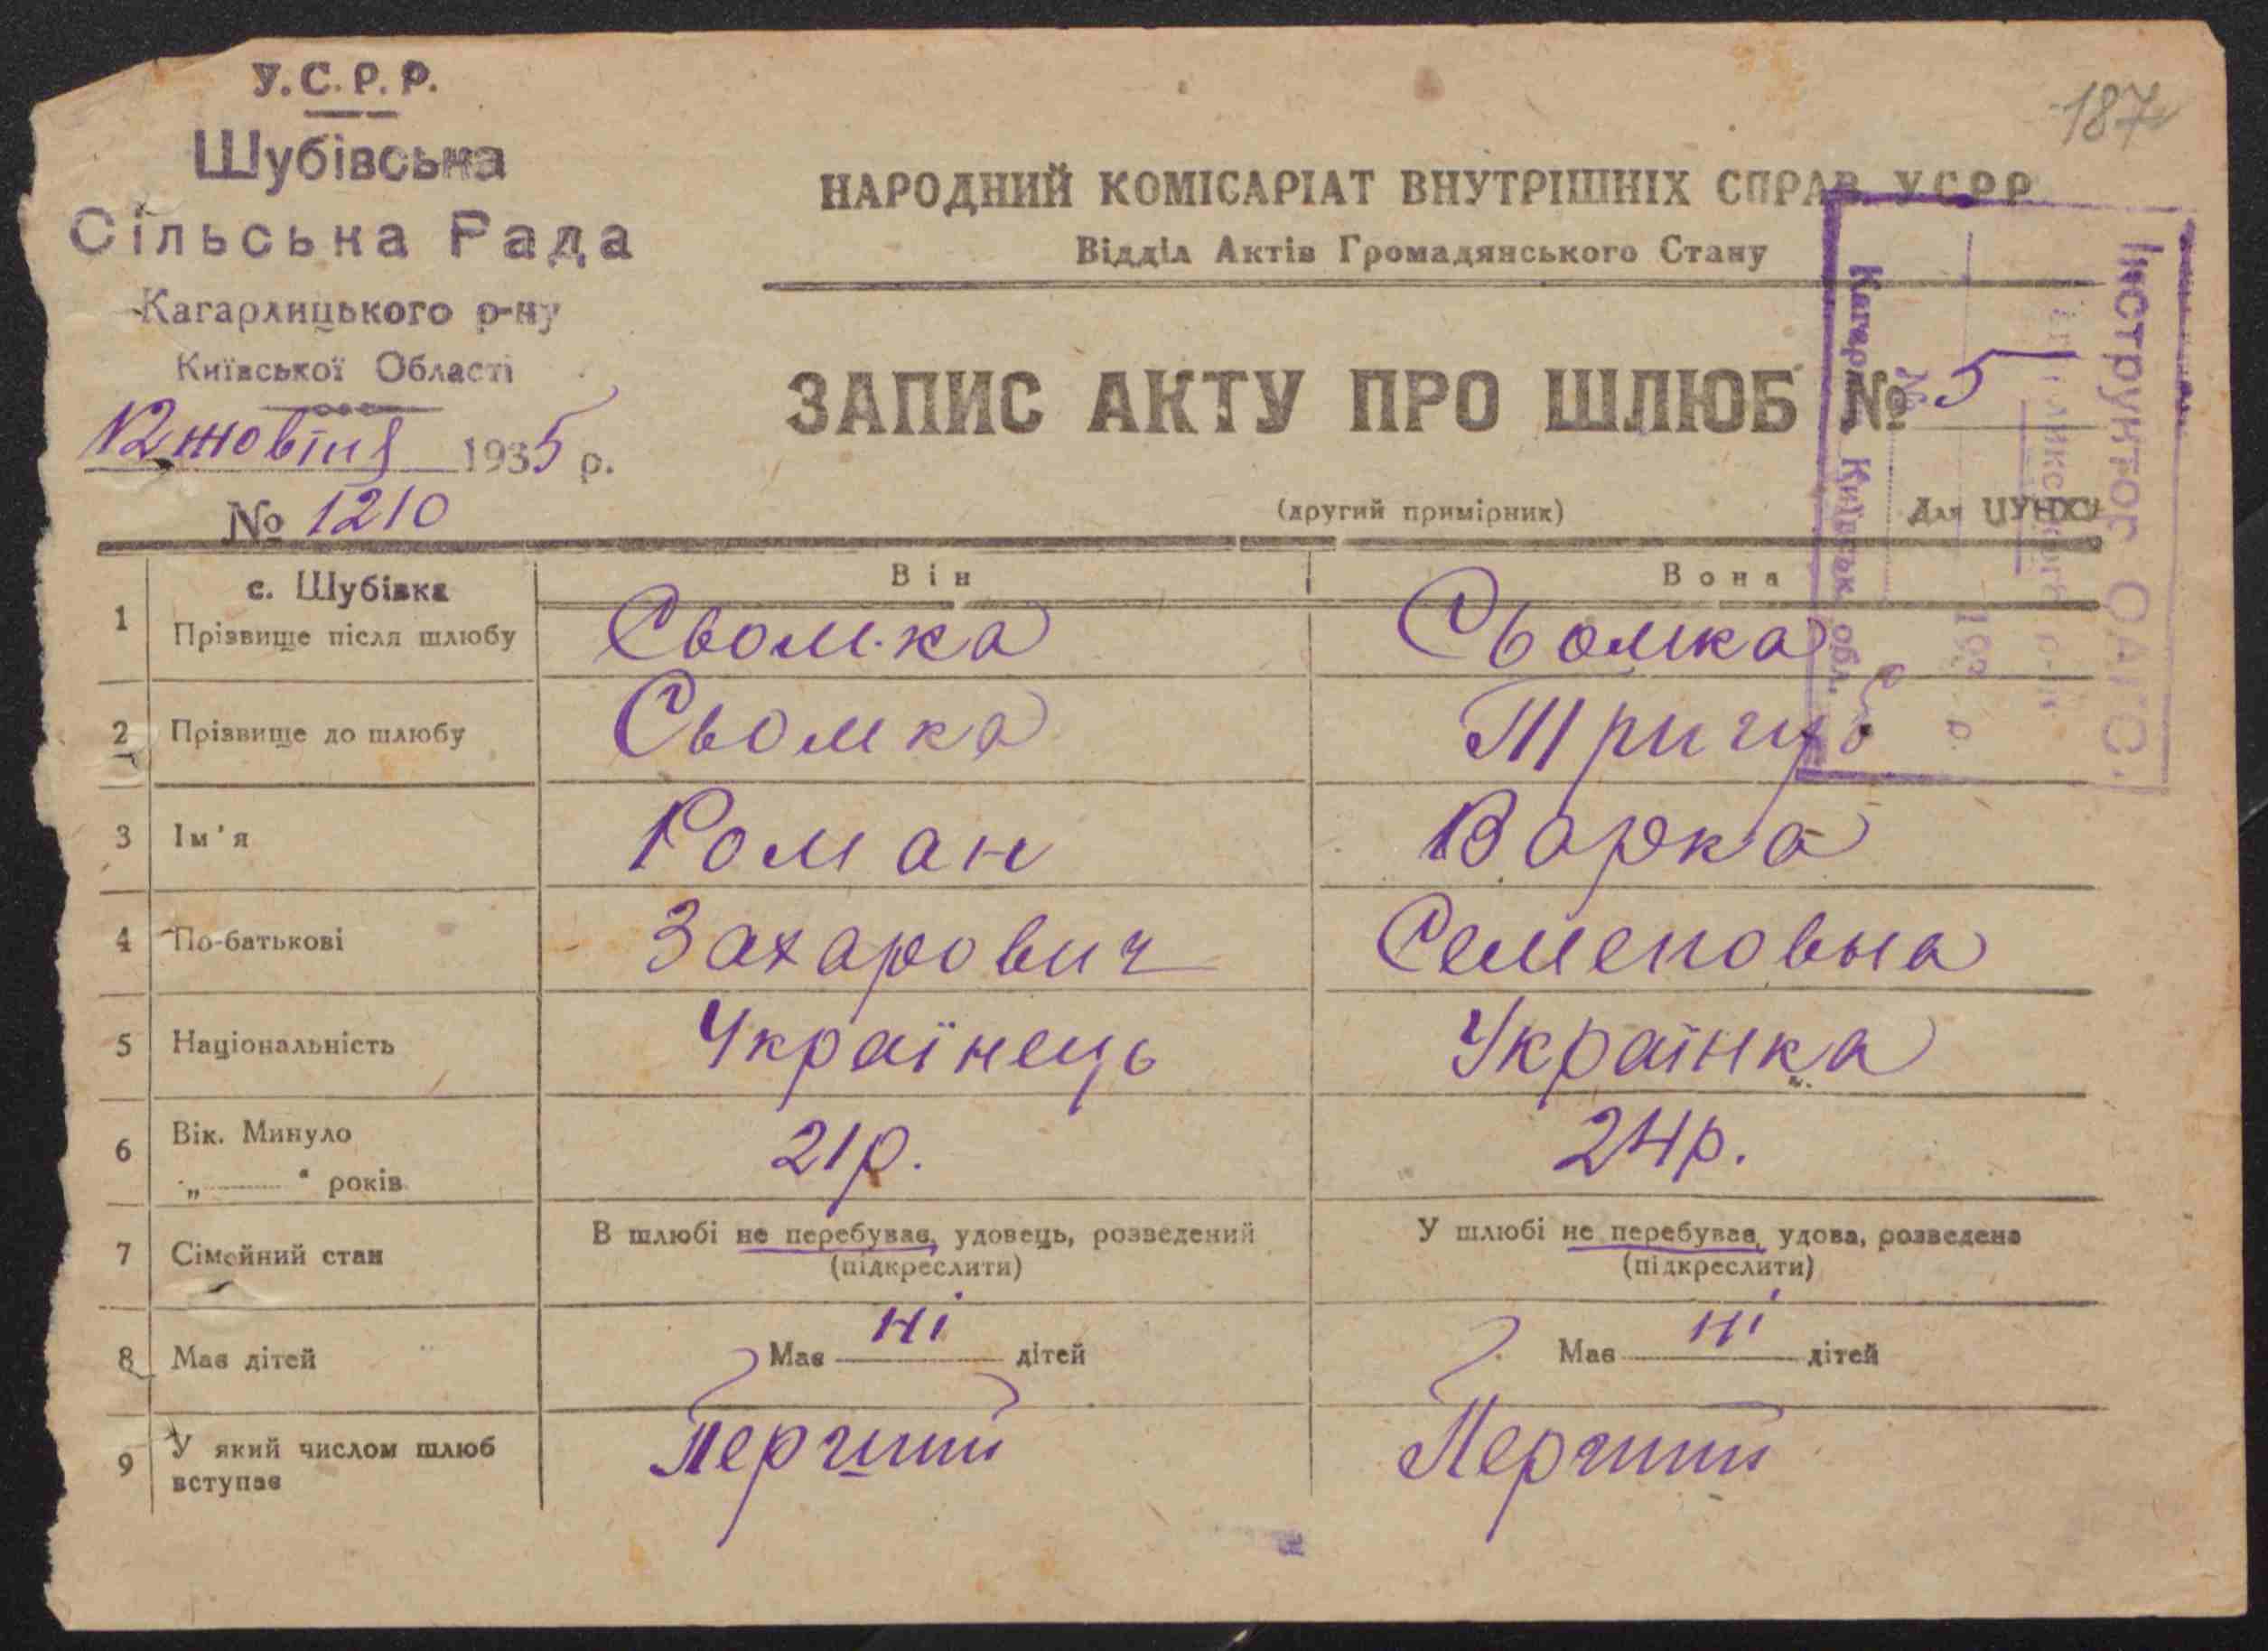 У.С.Р.Р.
Шубівська
Сільська Рада
Кагарлицького р-ну
Київської Області
12 жовтня 1935 р.
№ 1210
187
НАРОДНИЙ КОМІСАРІАТ ВНУТРІШНІХ СПРАВ У.С.Р.Р.
Відділ Актів Громадянського Стану
ЗАПИС АКТУ ПРО ШЛЮБ № 5
(другий примірник) Для ЦУНХУ
Інструктор ОАГС.
Київськ. обл.
с. Шубівка Він Вона
1 Прізвище після шлюбу Сьомка Сьомка
2 Прізвище до шлюбу Сьомка Тригуб
3 Ім'я Роман Варка
4 По-батькові Захарович Семеновна
5 Національність Українець Українка
6 Вік. Минуло 21р. 24р.
„ “ років
7 Сімейний стан В шлюбі не перебував, удовець, розведений У шлюбі не перебував, удова, розведена
(підкреслити) (підкреслити)
8 Має дітей Має ні дітей Має ні дітей
9 У який числом шлюб вступає Перший Перший